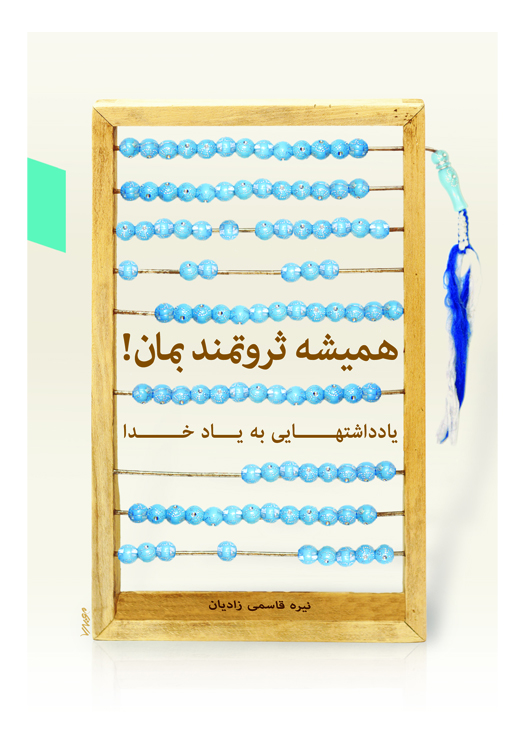 همیشه ثروتمند بمان!
یادداشتهایی به یاد خدا
نیره قاسمی زادیان